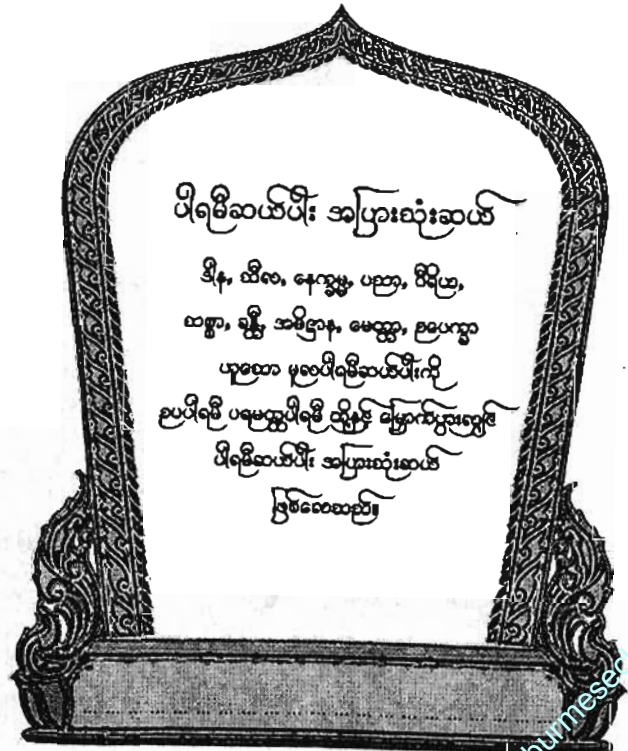 ပါရမီဆယ်ပါး အပြားသုံးဆယ်
ဒါန, သီလ, နေက္ခမ္မ, ပညာ, ဝီရိယ,
သစ္စာ, ခန္တီ, အဓိဋ္ဌာန, မေတ္တာ, ဥပေက္ခာ
ဟူသော မူလပါရမီဆယ်ပါးကို
ဥပပါရမီ ပရမတ္ထပါရမီ တို့နှင့် မြှောက်ပွားလျှင်
ပါရမီဆယ်ပါး အပြားသုံးဆယ်
ဖြစ်လေသည်။
burmese